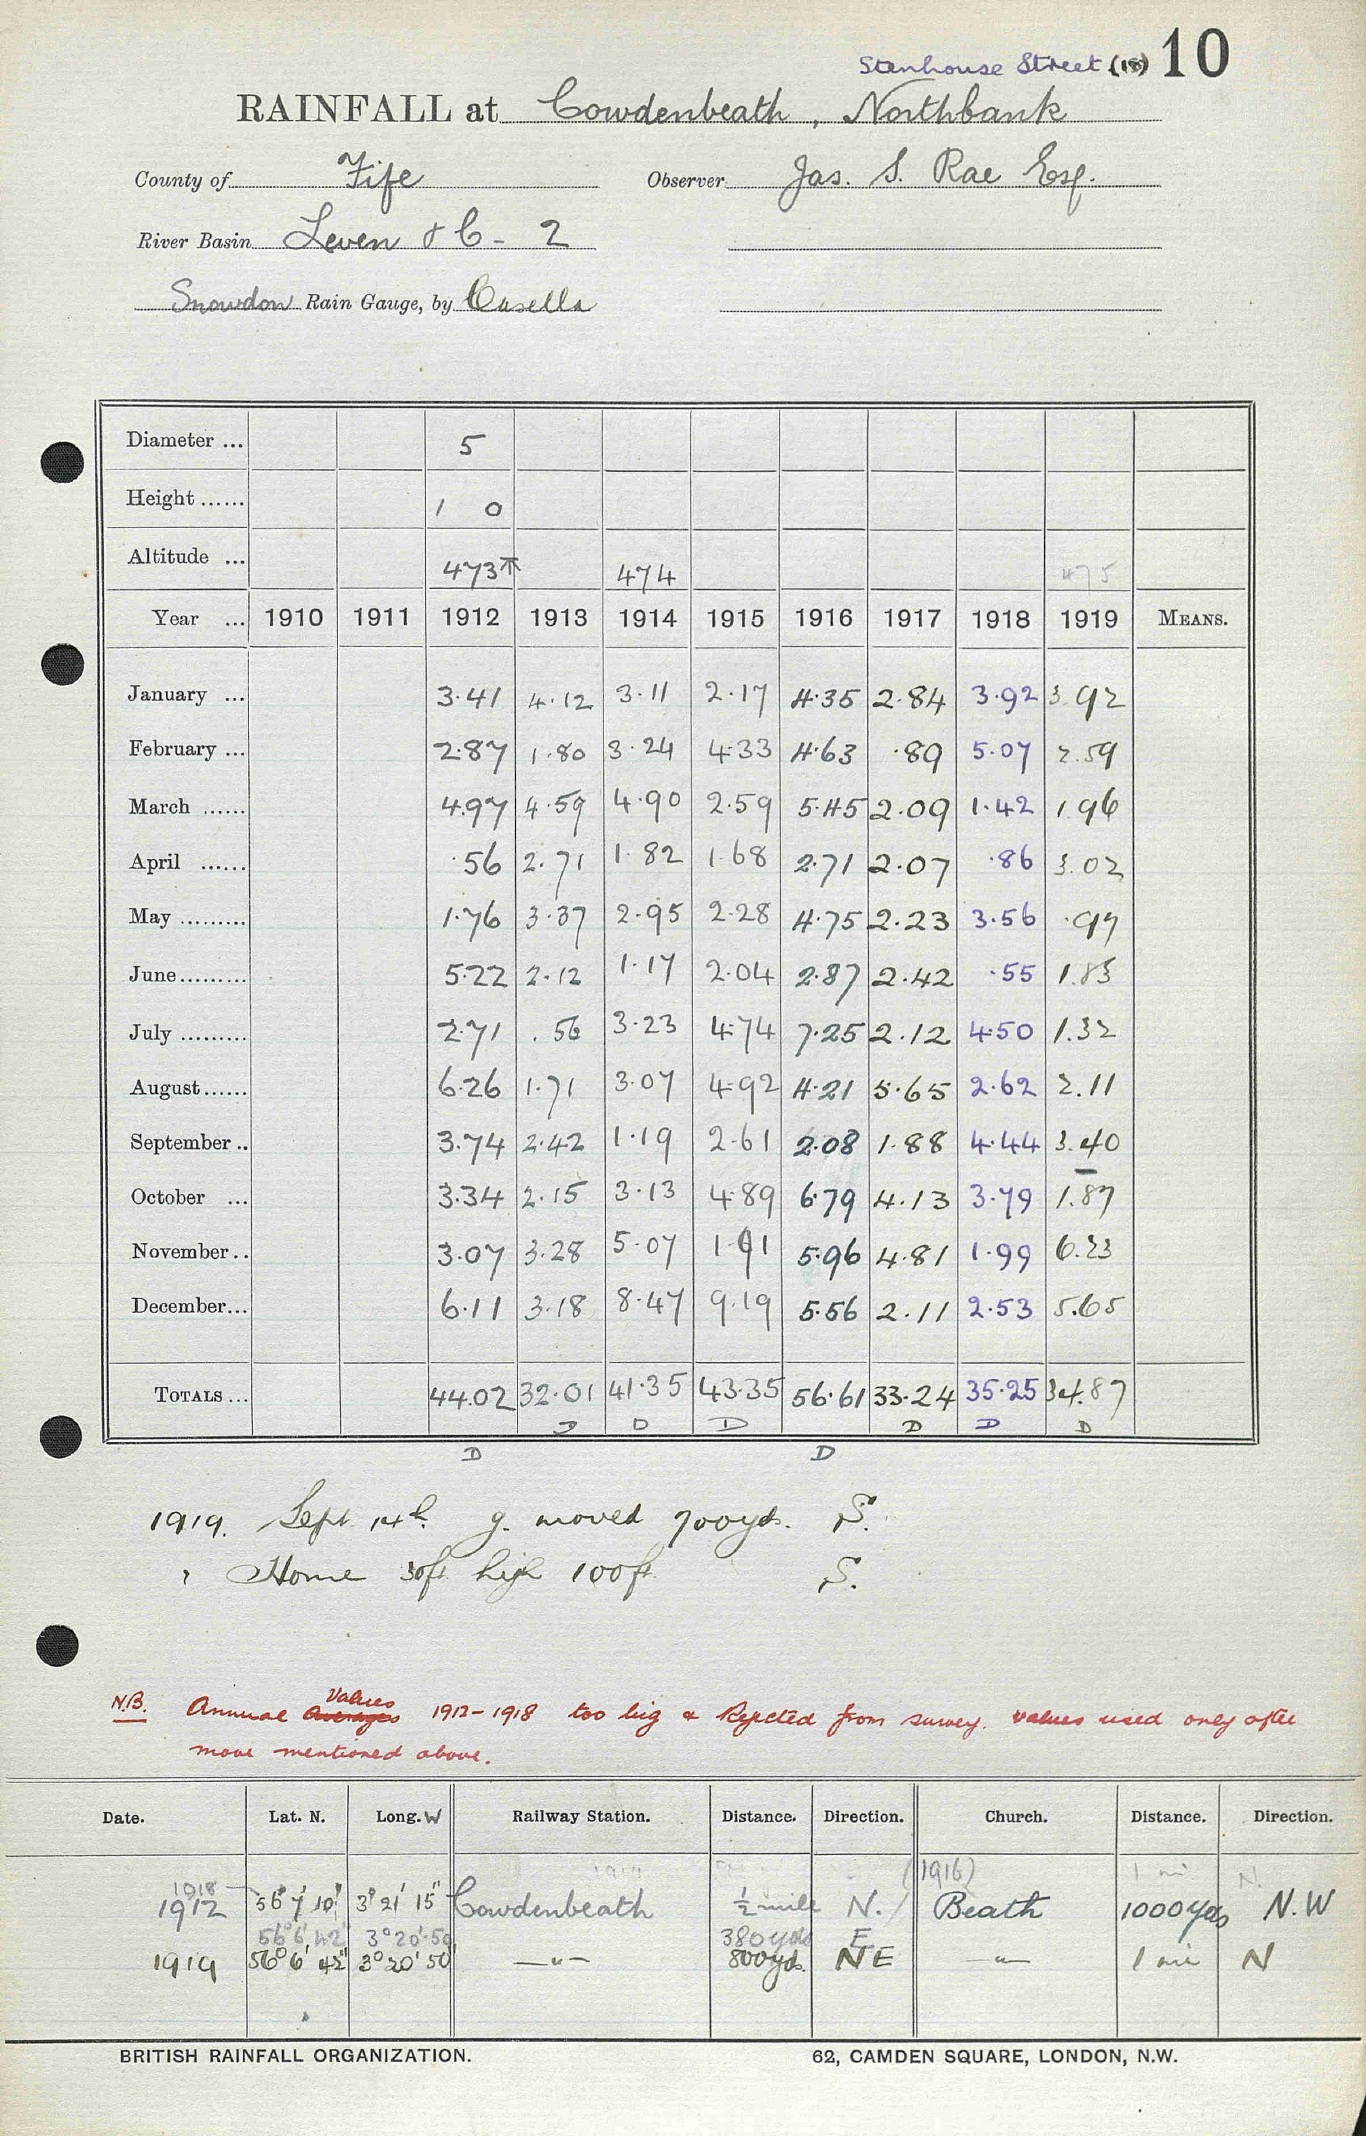 Stenhouse Street (18) 10
RAINFALL at Cowdenbeath, Northbank
County of Fife Observer Jas. S. Rae Esq.
River Basin Leven & C - 2
Snowdon Rain Gauge, by Casella
Diameter ... 5
Height ...... 1 0
Altitude ... 473 474 475
Year ... 1910 1911 1912 1913 1914 1915 1916 1917 1918 1919 MEANS.
January ... 3.41 4.12 3.11 2.17 4.35 2.84 3.92 3.92
February ... 2.87 1.80 3.24 4.33 4.63 .89 5.07 2.59
March ...... 4.97 4.59 4.90 2.59 5.45 2.09 1.42 1.96
April ...... .56 2.71 1.82 1.68 2.71 2.07 .86 3.02
May ......... 1.76 3.37 2.95 2.28 4.75 2.23 3.56 .97
June ......... 5.22 2.12 1.17 2.04 2.87 2.42 .55 1.83
July ......... 2.71 .56 3.23 4.74 7.25 2.12 4.50 1.32
August ...... 6.26 1.71 3.07 4.92 4.21 5.65 2.62 2.11
September .. 3.74 2.42 1.19 2.61 2.08 1.88 4.44 3.40
October ... 3.34 2.15 3.13 4.89 6.79 4.13 3.79 1.87
November .. 3.07 3.28 5.07 1.91 5.96 4.81 1.99 6.23
December ... 6.11 3.18 8.47 9.19 5.56 2.11 2.53 5.65
TOTALS ... 44.02 32.01 41.35 43.35 56.61 33.24 35.25 34.87
D D D D D D
D D
1919. Sept 14th. g. moved 700yds. S.
" Home 30ft high 100ft S.
N.B. Annual Averages Values 1912-1918 too big & Rejected from survey. Values used only after
move mentioned above.
Date. Lat. N. Long. W Railway Station. Distance. Direction. Church. Distance. Direction.
(1916) 1 mi N.
1918
1912 56° 7' 10" 3° 21' 15" Cowdenbeath ½ mile N. Beath 1000 yds N.W
56° 6' 42" 3° 20' 50 380 yds E
1919 56° 6' 42" 3° 20' 50" —"— 800yds. NE —"— 1 mi N
BRITISH RAINFALL ORGANIZATION. 62, CAMDEN SQUARE, LONDON, N.W.